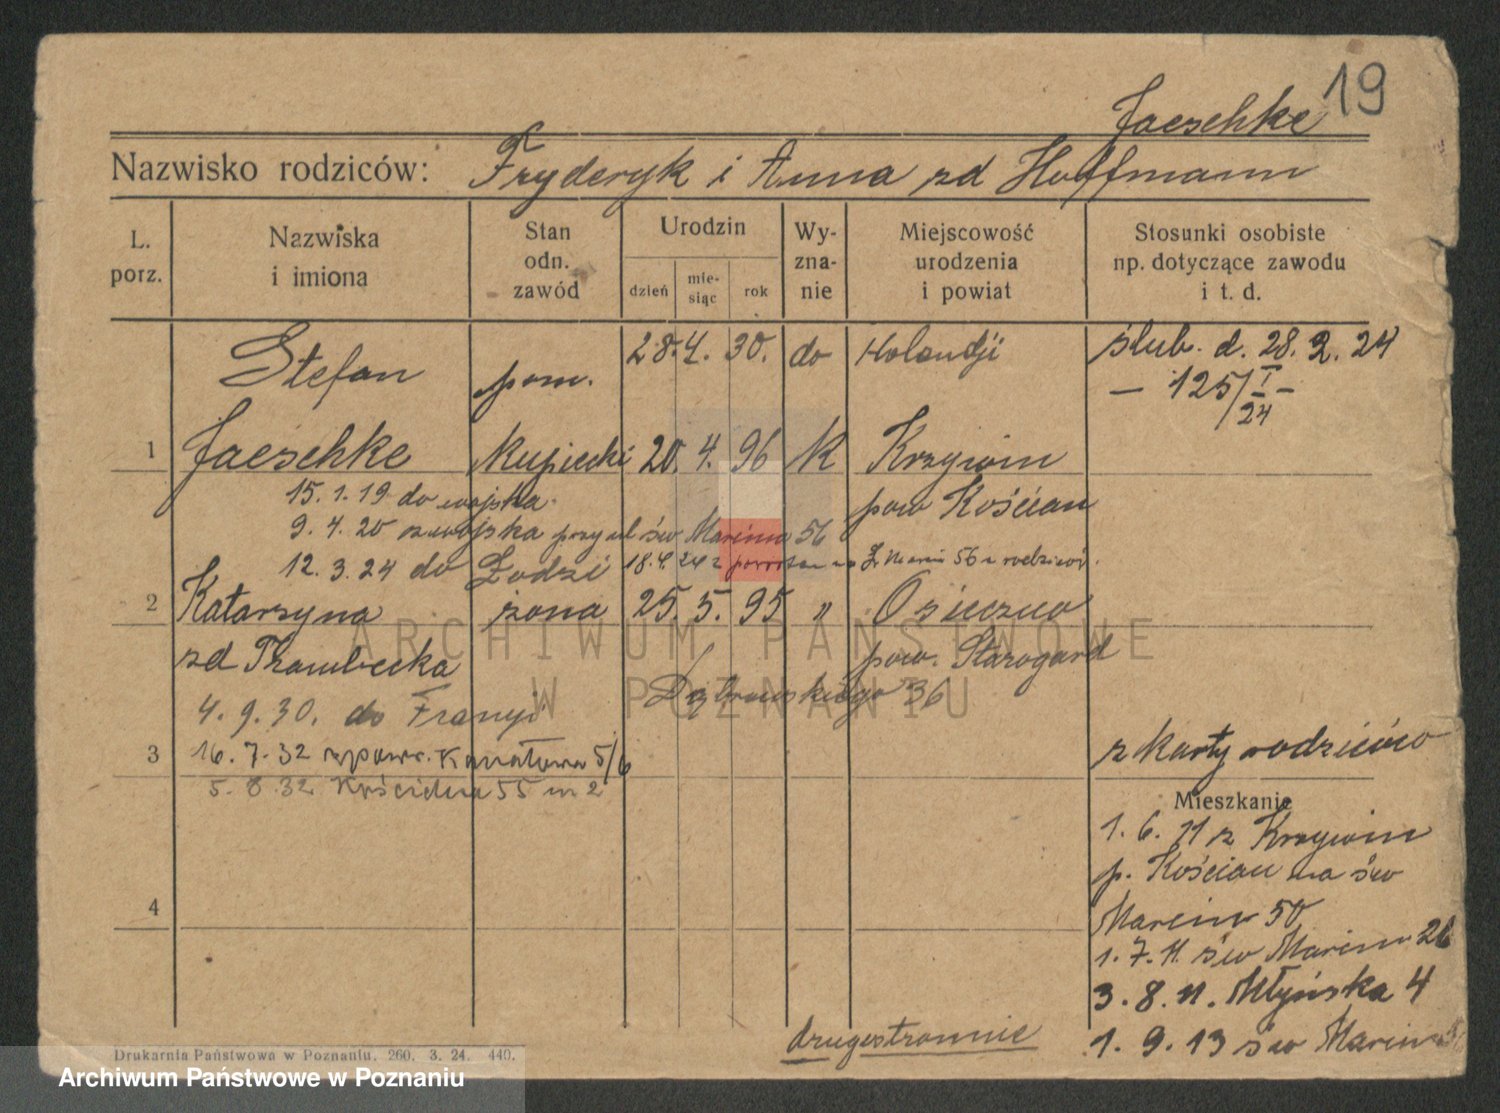 19
Jaeschke
Nazwisko rodziców: Fryderyk i Anna zd Hoffmann
L. porz.
Nazwiska i imiona
Stan odn. zawód
Urodzin
dzień
mie-
siąc
rok
Wy-
zna-
nie
Miejscowość urodzenia i powiat
Stosunki osobiste np. dotyczące zawodu i t. d.
28. 4. 30. do Holandji
ślub. d. 28. 2. 24
Stefan pom.
— 125/I 24 —
1 Jaeschke kupiecki 20. 4. 96 k Krzywin
15. 1. 19 do wojska
pow Kościan
9. 4. 20 z wojska przy ul św Marcina 56
12. 3. 24 do Łodzi 18.4.24 z Marcin 56 rodziców.
2 Katarzyna żona 25. 5. 95 "
zd Trambecka
pow. Starogard
4. 9. 30. do Francji
Dąbrowskiego 36
3 16. 7. 32 Kanałowa 5/6
z karty rodziców
5. 8. 32 55 m 2
Mieszkanie
1. 6. 11 z Krzywin
p. Kościan na św
4
Marcin 50
1. 7. 11. św Marcin 26
3. 8. 11. Młyńska 4
1. 9. 13 św Marcin
drugostronnie
Drukarnia Państwowa w Poznaniu. 260. 3. 24. 440.
ARCHIWUM PAŃSTWOWE
W POZNANIU
Archiwum Państwowe w Poznaniu